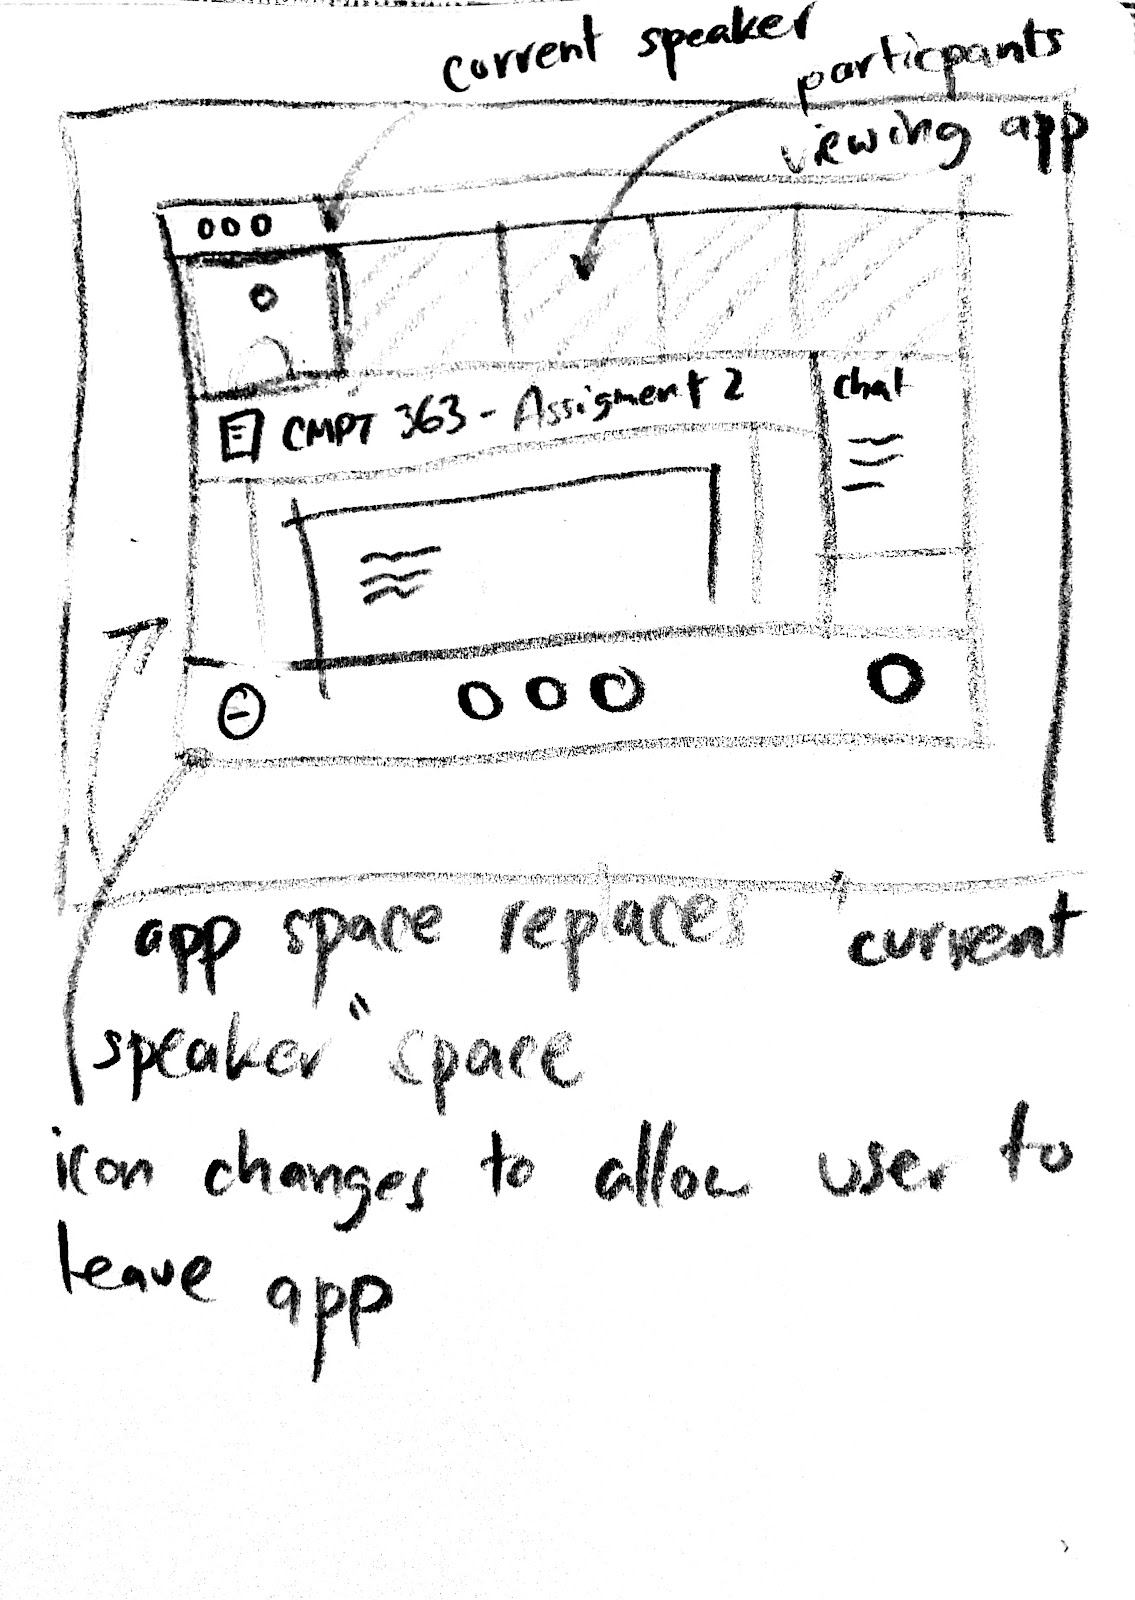 current speaker
particpants
viewing app
chat
CMPT 363 - Assigment 2
app space replaces "current
speaker" space
icon changes to allow user to
leave app